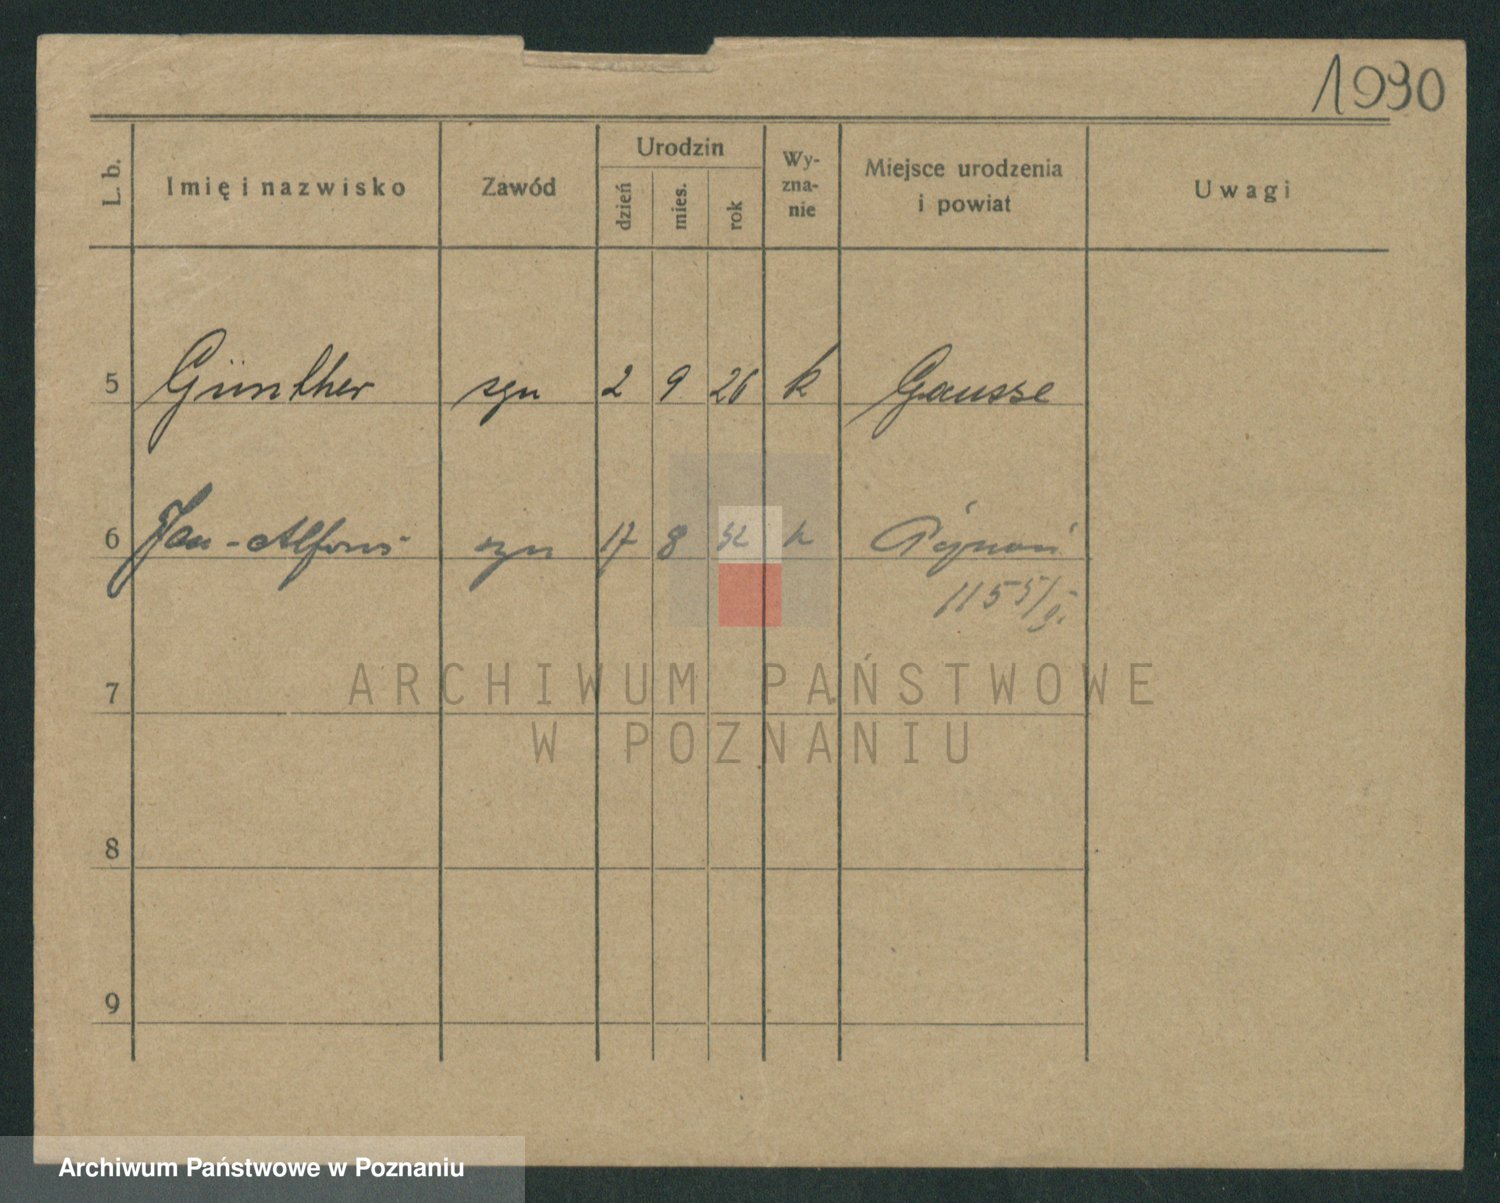 1930
L. b.
Imię i nazwisko
Zawód
Urodzin
dzień
mies.
rok
Wy-
zna-
nie
Miejsce urodzenia
i powiat
Uwagi
5 Günther syn 2 9 26 k Gausse
6 Jan-Alfons syn 17 8 32 k Poznań
1155/
7
8
9
ARCHIWUM PAŃSTWOWE
W POZNANIU
Archiwum Państwowe w Poznaniu